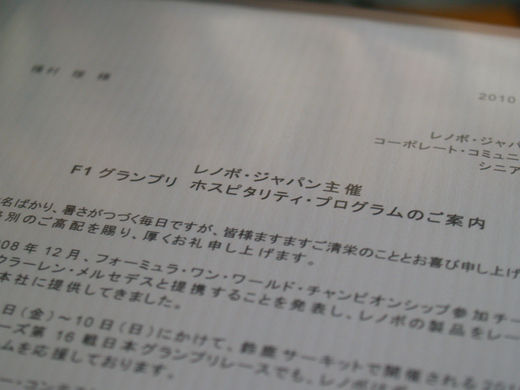 様
2010
レノボ・ジャパ
コーポレート・コミュニ
シニア
レノボ・ジャパン主催
F1 グランプリ ホスピタリティ・プログラムのご案内
名ばかり、暑さがつづく毎日ですが、皆様ますますご清栄のこととお喜び申し上げ
別のご高配を賜り、厚くお礼申し上げます。
08年12月、フォーミュラ・ワン・ワールド・チャンピオンシップ参加チー
クラーレン・メルセデスと提携することを発表し、レノボの製品をレー
本社に提供してきました。
日(金)～10日(日)にかけて、鈴鹿サーキットで開催される20
ーズ第16戦日本グランプリレースでも、レノボは
ムを応援しております。